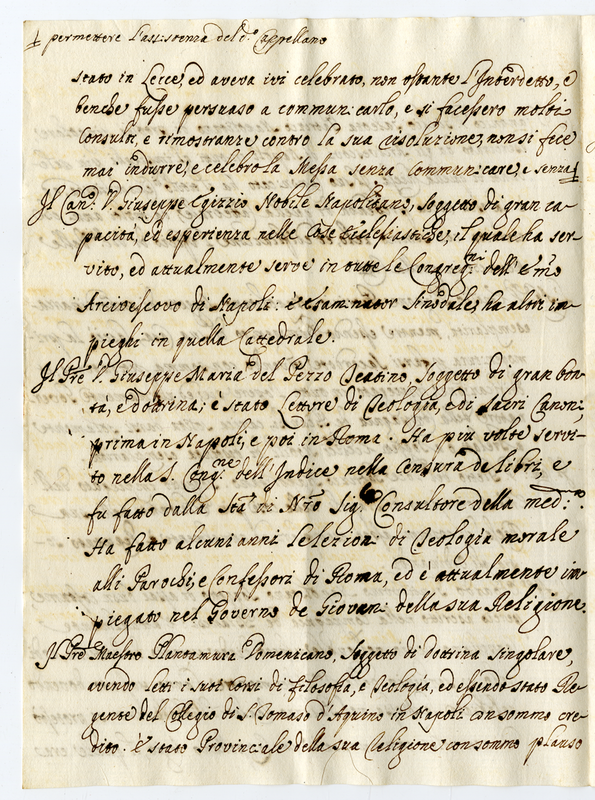 ╪ permettere l'assistenza del d.º Cappellano
stato in Lecce, ed aveva ivi celebrato, non ostante l'Interdetto, e
benche fusse persuaso a communicarlo, e si facessero molti
Consulti, e rimostranze contro la sua risoluzione, non si fece
mai indurre, e celebrò la Messa senza communicare, e senza ╪
Il Can.º D. Giuseppe Egizzio Nobile Napolitano, soggetto di gran ca-
pacità, ed esperienza nelle Cose Ecclesiastiche, il quale ha ser-
vito, ed attualmente serve in tutte le Congreg.ni dell' E.mo
Arcivescovo di Napoli: è Esaminator Sinodale, ha altri im-
pieghi in quella Cattedrale.
Il Pre D. Giuseppe Maria del Pezzo Teatino, soggetto di gran bon-
tà, e dottrina; è stato Lettore di Teologia, e di sacri Canoni,
prima in Napoli, e poi in Roma. Ha più volte servi-
to nella S. Cong.ne dell' Indice nella Censura de libri, e
fu fatto dalla Stà di Nrõ Sig.re Consultore della med.ª.
Ha fatto alcuni anni le lezioni di Teologia morale
alli Parochi, e Confessori di Roma, ed è attualmente im-
piegato nel Governo de Giovani della sua Religione.
Il Pre Maestro Plantamura Domenicano, soggetto di dottrina singolare,
avendo letti i suoi Corsi di filosofia, e Teologia, ed essendo stato Re-
gente del Collegio di S. Tomaso d'Aquino in Napoli con sommo cre-
dito. è stato Provinciale della sua Religione con sommo plauso